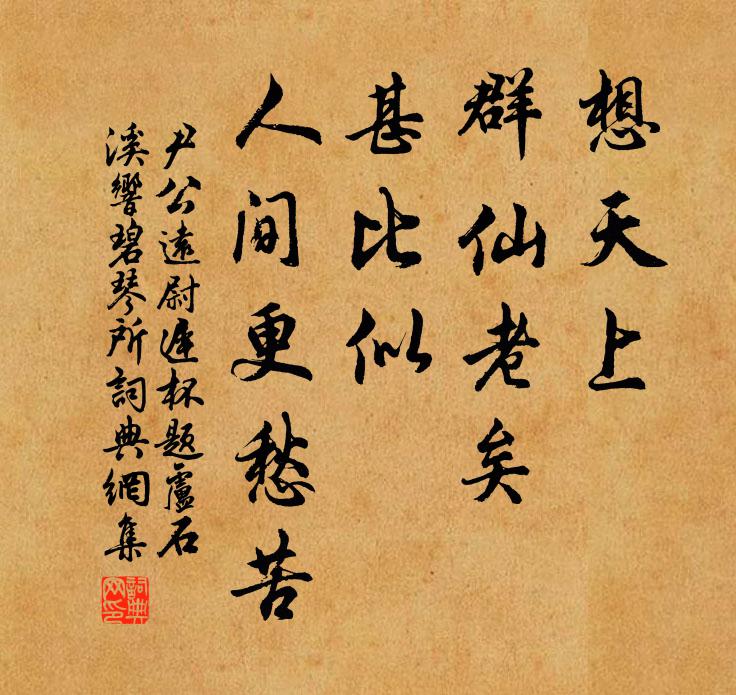 想天上
群仙老矣
甚比似
人间更愁苦
尹公遠尉遲杯题盧石
溪響碧琴所詞典網集
詞典网印